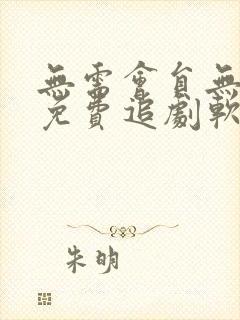 無需會員無
免費追劇軟
朱明